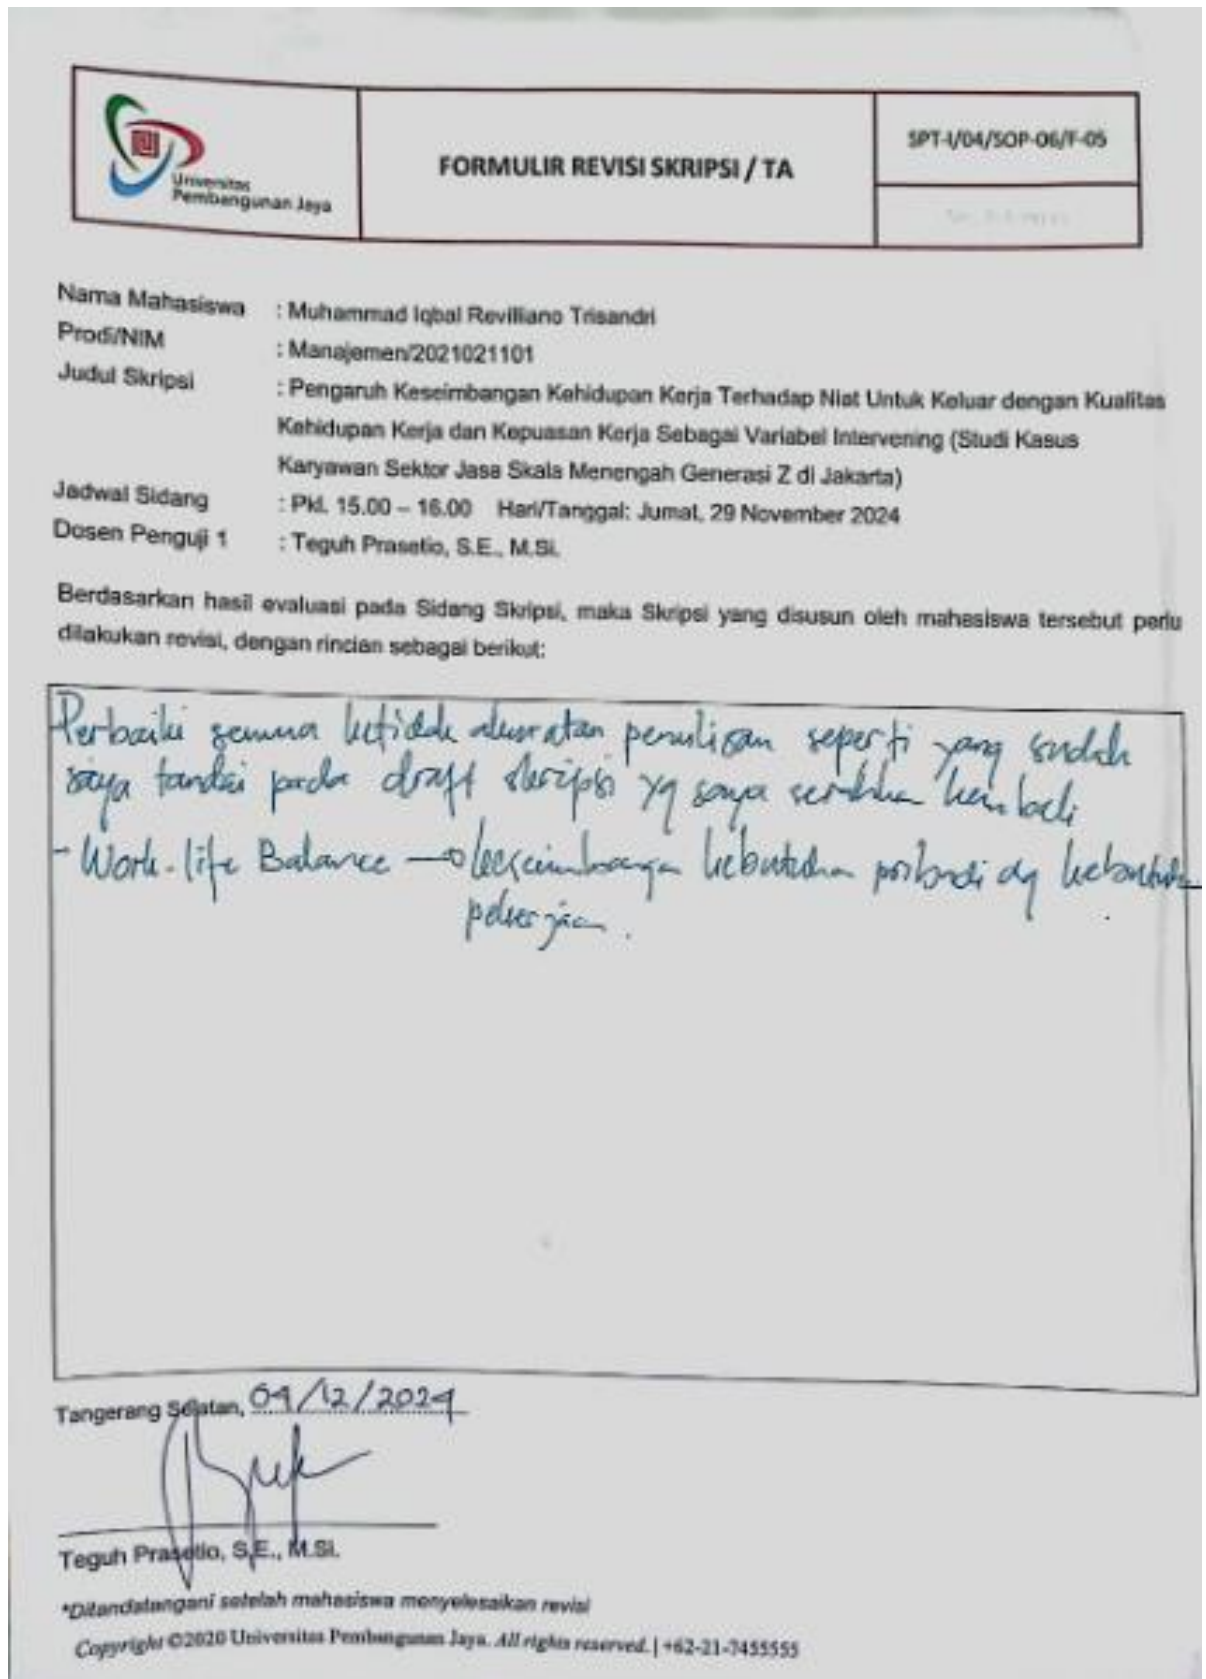 Universitas
Pembangunan Jaya
FORMULIR REVISI SKRIPSI / TA
SPT-I/04/SOP-06/F-05
Nama Mahasiswa : Muhammad Iqbal Revilliano Trisandri
Prodi/NIM : Manajemen/2021021101
Judul Skripsi : Pengaruh Keseimbangan Kehidupan Kerja Terhadap Niat Untuk Keluar dengan Kualitas
Kehidupan Kerja dan Kepuasan Kerja Sebagai Variabel Intervening (Studi Kasus
Karyawan Sektor Jasa Skala Menengah Generasi Z di Jakarta)
Jadwal Sidang : Pkl. 15.00 – 16.00 Hari/Tanggal: Jumat, 29 November 2024
Dosen Penguji 1 : Teguh Prasetio, S.E., M.Si.
Berdasarkan hasil evaluasi pada Sidang Skripsi, maka Skripsi yang disusun oleh mahasiswa tersebut perlu
dilakukan revisi, dengan rincian sebagai berikut:
Perbaiki semua ketidak akuratan penulisan seperti yang sudah
saya tandai pada draft skripsi yg saya serahkan kembali
- Work-life Balance → keseimbangan kebutuhan pribadi dg kebutuhan
pekerjaan.
Tangerang Selatan, 04/12/2024
Teguh Prasetio, S.E., M.Si.
*Ditandatangani setelah mahasiswa menyelesaikan revisi
Copyright ©2020 Universitas Pembangunan Jaya. All rights reserved. | +62-21-7455555